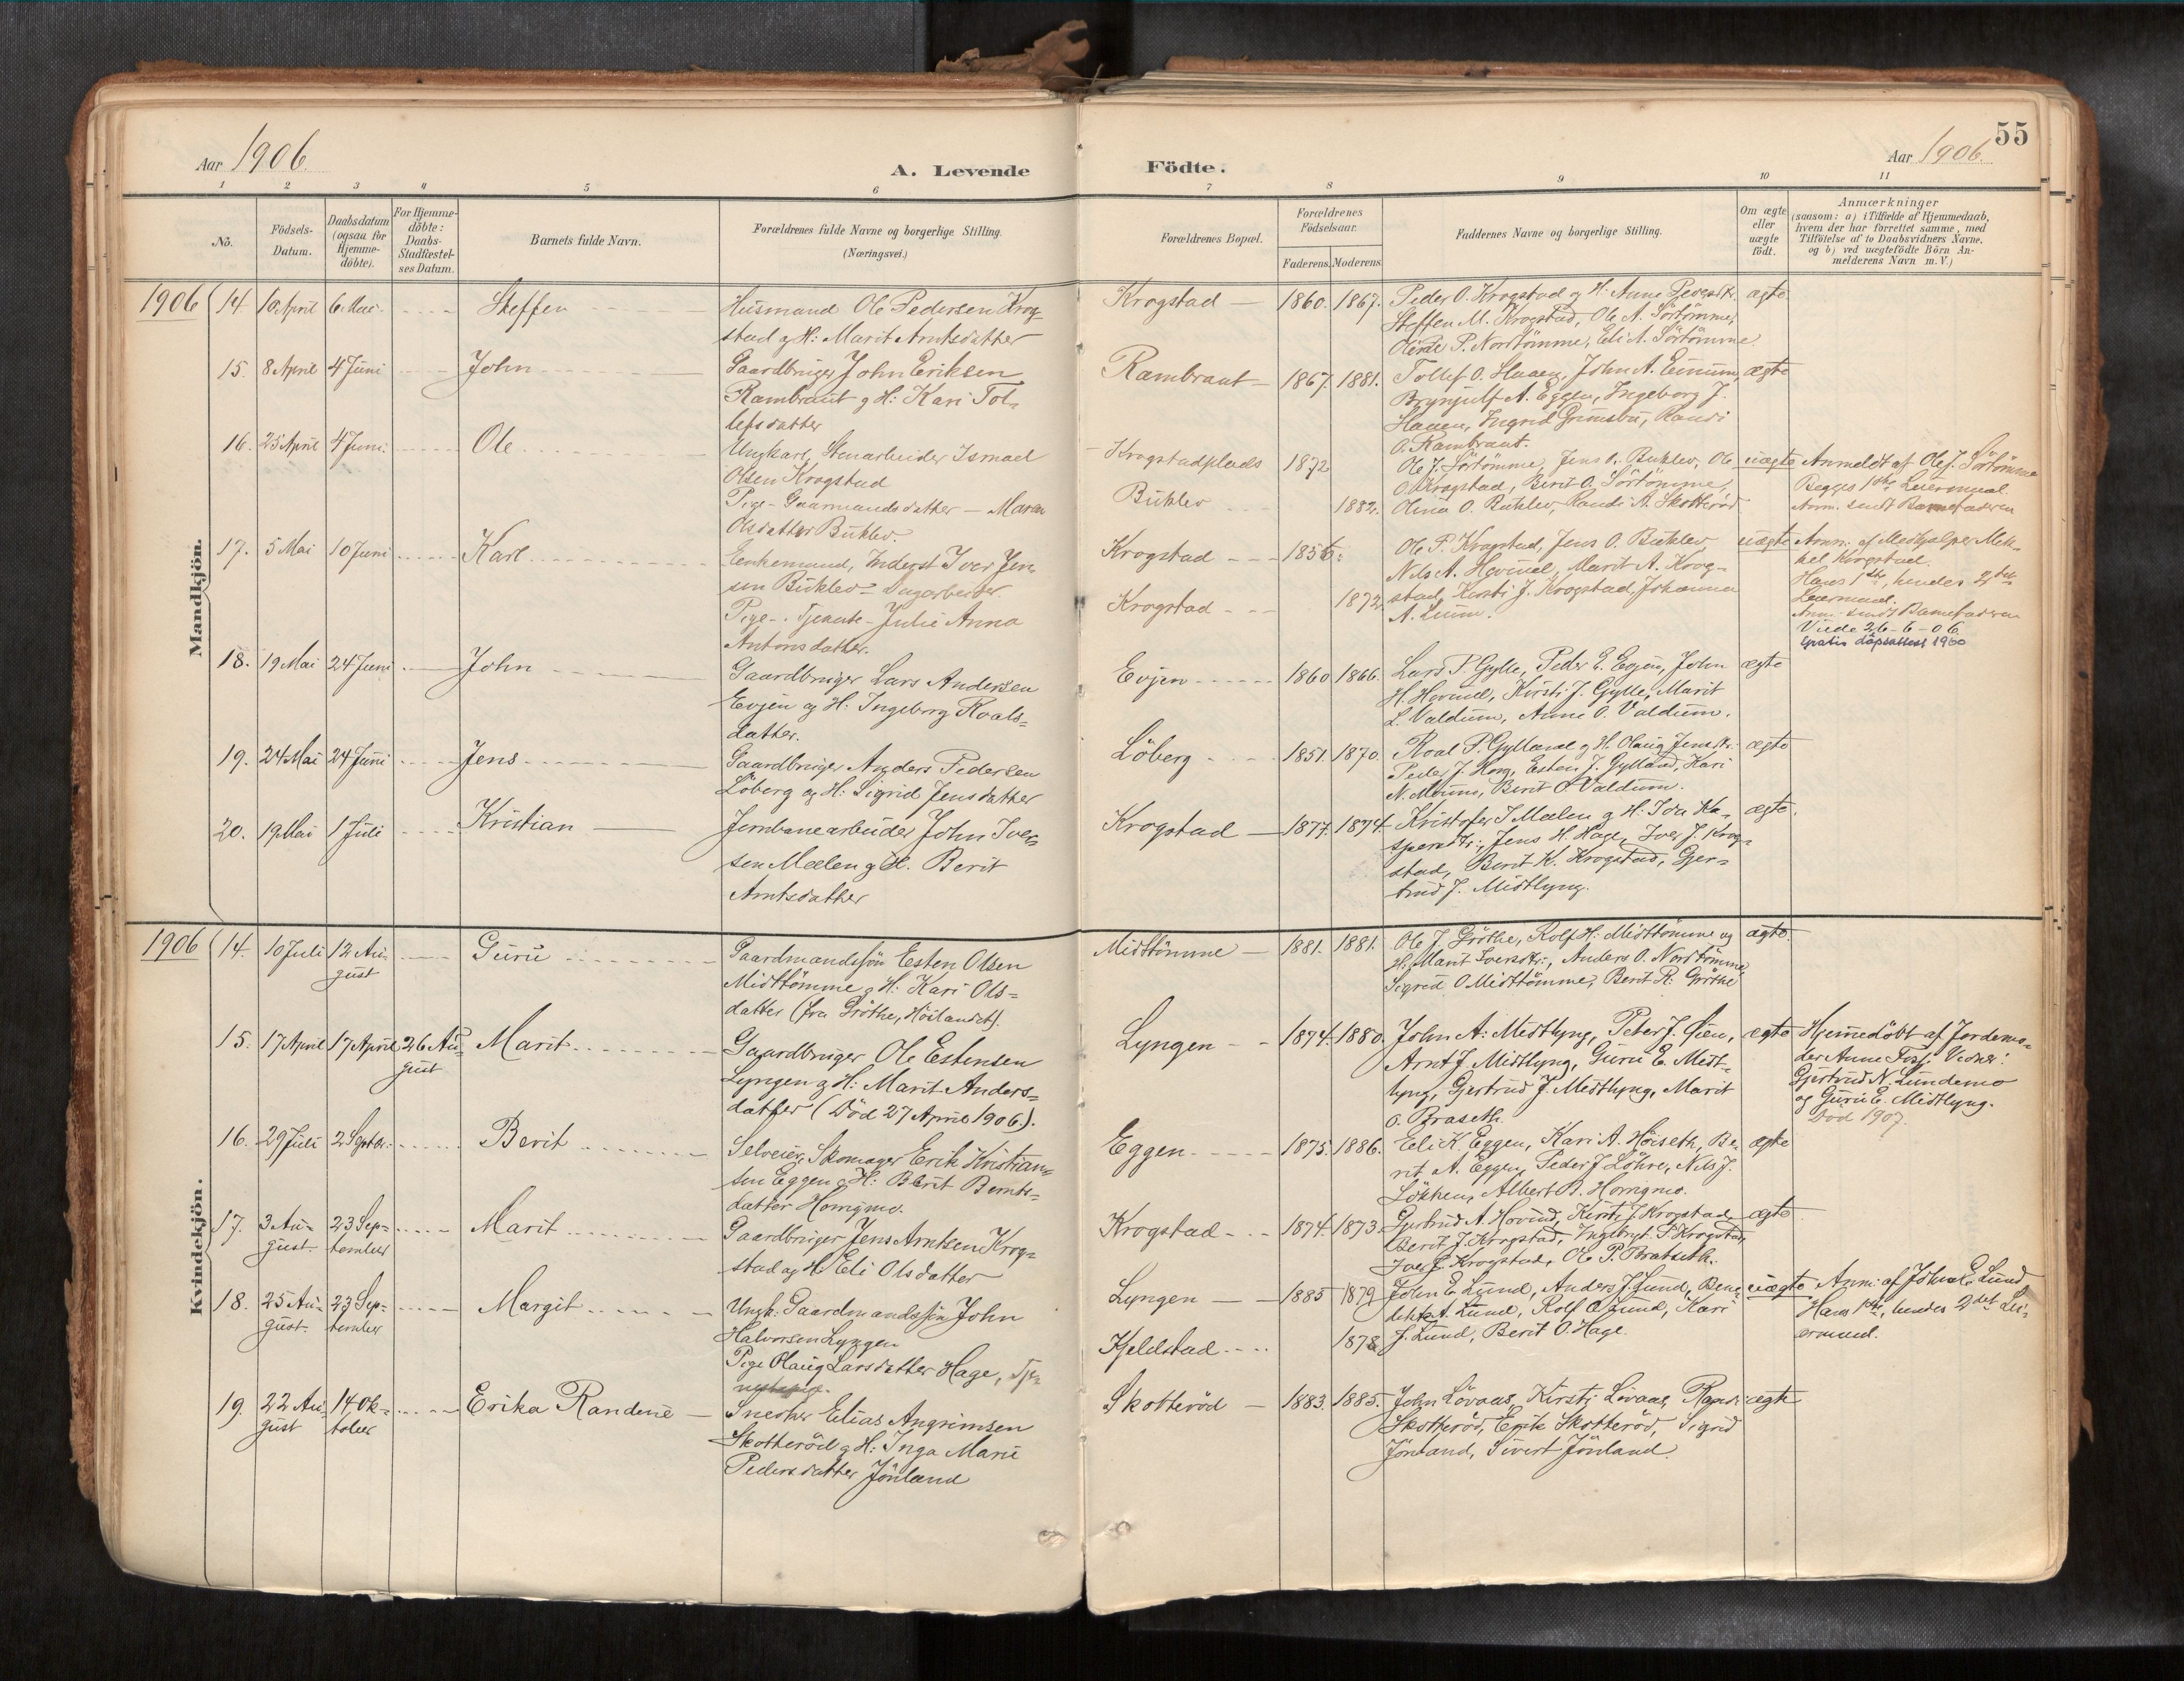 55
Aar 1906.
A. Levende
Födte.
Aar 1906.
1 2 3 4 5 6 7 8 9 10 11
No.
Födsels-
Datum.
Daabsdatum
(ogsaa for
Hjemme-
döbte).
For Hjemme-
döbte:
Daabs-
Stadfæstel-
ses Datum.
Barnets fulde Navn.
Forældrenes fulde Navne og borgerlige Stilling.
(Næringsvei.)
Forældrenes Bopæl.
Forældrenes
Födselsaar.
Faderens. Moderens
Faddernes Navne og borgerlige Stilling.
Om ægte
eller
uægte
födt.
Anmærkninger
(saasom: a) i Tilfælde af Hjemmedaab,
hvem der har forrettet samme, med
Tilföielse af to Daabsvidners Navne,
og b) ved uægtefödte Börn An-
melderens Navn m. V.)
Mandkjön.
1906 14. 10 April 6 Mai Steffen
Husmand Ole Pedersen Krog-
stad og H: Marit Arntsdatter
Krogstad 1860. 1867.
Peder O. Krogstad og H: Anne
Steffen M. Krogstad, Ole A. Sörtömme,
P. Nordtömme, Eli A. Sörtömme
ægte
15. 8 April 4 Juni John
Gaardbruger John Eriksen
Rambraut og H: Kari Tol-
lefsdatter
Rambraut 1867. 1881.
Tollef O. Hauen, John A. Einum,
Brynjulf A. Eggen, Ingeborg J.
Hauen, Ingrid Grinsbu, Randi
O. Rambraut.
ægte
16. 25 April 4 Juni. Ole
Ungkarl, Stenarbeider Ismael
Olsen Krogstad
Pige - Gaarmandsdatter - Maren
Olsdatter Buklev.
Krogstadplads 1872
Buklev 1882.
Ole J. Sörtömme, Jens O. Buklev, Ole
O. Krogstad, Berit O. Sörtömme,
Olina O. Buklev, Randi A. Skotteröd
uægte
Anmeldt af Ole J. Sörtömme
Begges 1ste Leiermaal.
Anm. sendt Barnefaderen
17. 5 Mai 10 Juni Karl
Enkemand, Inderst Iver Jen-
sen Buklev - Dagarbeider.
Pige - Tjenende - Julie Anna
Antonsdatter.
Krogstad 1856.
Krogstad 1872.
Ole P. Krogstad, Jens O. Buklev
Nils A. Hovind, Marit A. Krog-
stad, Kirsti J. Krogstad, Johanna
A. Lium.
uægte
Anm. af Medhjelper Mek-
kel Krogstad.
Hans 1ste, hendes 2det
Leiermaal.
Anm. sendt Barnefaderen
26-6-06.
Gratis dåpsattest 1950
18. 19 Mai 24 Juni John
Gaardbruger Lars Andersen
Evjen og H: Ingeborg Roals-
datter.
Evjen 1860 1866.
Lars P. Gylle, Peder E. Evjen, John
H. Hovind, Kirsti J. Gylle, Marit
L. Valdum, Anne O. Valdum.
ægte
19. 24 Mai 24 Juni Jens
Gaardbruger Anders Pedersen
Löberg og H: Sigrid Jensdatter
Löberg 1851. 1870.
Roal P. Gylland og H. Olaug Jensdtr.
Peder J. Horg, Esten J. Gylland, Kari
N. Moum, Berit O. Valdum.
ægte
20. 19 Mai 1 Juli Kristian
Jernbanearbeider John Iver-
sen Mælen og H. Berit
Arntsdatter
Krogstad 1877. 1874.
Kristofer I. Mælen og H: Ida Ka-
spersdtr., Jens H. Hage, Iver J. Krog-
stad, Berit K. Krogstad, Gjer-
trud J. Midtlyng.
ægte.
Kvindekjön.
1906 14. 10 Juli 12 Au-
gust
Guru
Gaardmandssön Esten Olsen
Midttömme og H: Kari Ols-
datter (fra Gröthe, Höilandet).
Midttömme 1881. 1881.
Ole J. Gröthe, Rolf H. Midttömme og
H. Marit Iversdtr., Anders O. Nordtömme,
Sigrid O. Midttömme, Berit R. Gröthe
ægte.
15. 17 April 17 April 26 Au-
gust
Marit
Gaardbruger Ole Estensen
Lyngen og H: Marit Anders-
datter (Död 27 April 1906).
Lyngen 1874. 1880.
John A. Midtlyng, Peter J. Öien,
Arnt J. Midtlyng, Guru E. Midt-
lyng, Gjertrud J. Midtlyng, Marit
O. Braseth.
ægte
Hjemmedöbt af Jordemo-
der Anne Foss. Vidner:
Gjertrud N. Lundemo
og Guru E. Midtlyng.
Död 1907.
16. 29 Juli 2 Septbr. Berit
Selveier, Skomager Erik Kristian-
sen Eggen og H: Berit Bernts-
datter Horrigmo.
Eggen 1875. 1886.
Eli K. Eggen, Kari A. Höiseth, Be-
rit A. Eggen, Peder J. Löhre, Nils J.
Lökken, Albert B. Horrigmo.
ægte
17. 3 Au-
gust.
23 Sep-
tember
Marit
Gaardbruger Jens Arntsen Krog-
stad og H: Eli Olsdatter
Krogstad 1874. 1873.
Gjertrud A. Hovind, Kirsti J. Krogstad
Berit J. Krogstad, Ingebrigt P. Krogstad,
Iver J. Krogstad, Ole P. Bratseth.
ægte
18. 25 Au-
gust.
23 Sep-
tember
Margit
Ungk. Gaardmandssön John
Halvorsen Lyngen
Pige Olaug Larsdatter Hage, Tje-
nestepige.
Lyngen 1885 1879
Kjeldstad 1878
John E. Lund, Anders J. Lund, Bene-
dikte A. Lund, Rolf O. Lund, Kari
J. Lund, Berit O. Hage.
uægte
Anm: af John E. Lund
Hans 1ste, hendes 2det Lei-
ermaal.
19. 22 Au-
gust
14 Ok-
tober
Erika Randine
Snedker Elias Angrimsen
Skotteröd og H: Inga Marie
Pedersdatter Jönland
Skotteröd 1883. 1885.
John Lövaas, Kirsti Lövaas, Randi
Skotteröd, Erik Skotteröd, Sigrid
Jönland, Sivert Jönland.
ægte